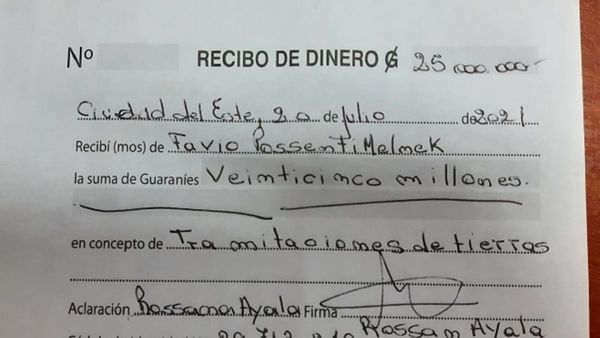 Nº RECIBO DE DINERO ₲ 25.000.000-
Ciudad del Este, 20 de Julio de 2021
Recibí (mos) de Favio Possenti Melnek
la suma de Guaraníes Veinticinco millones.
en concepto de Tramitaciones de tierras
Aclaración Rossana Ayala Firma
Rossam Ayala